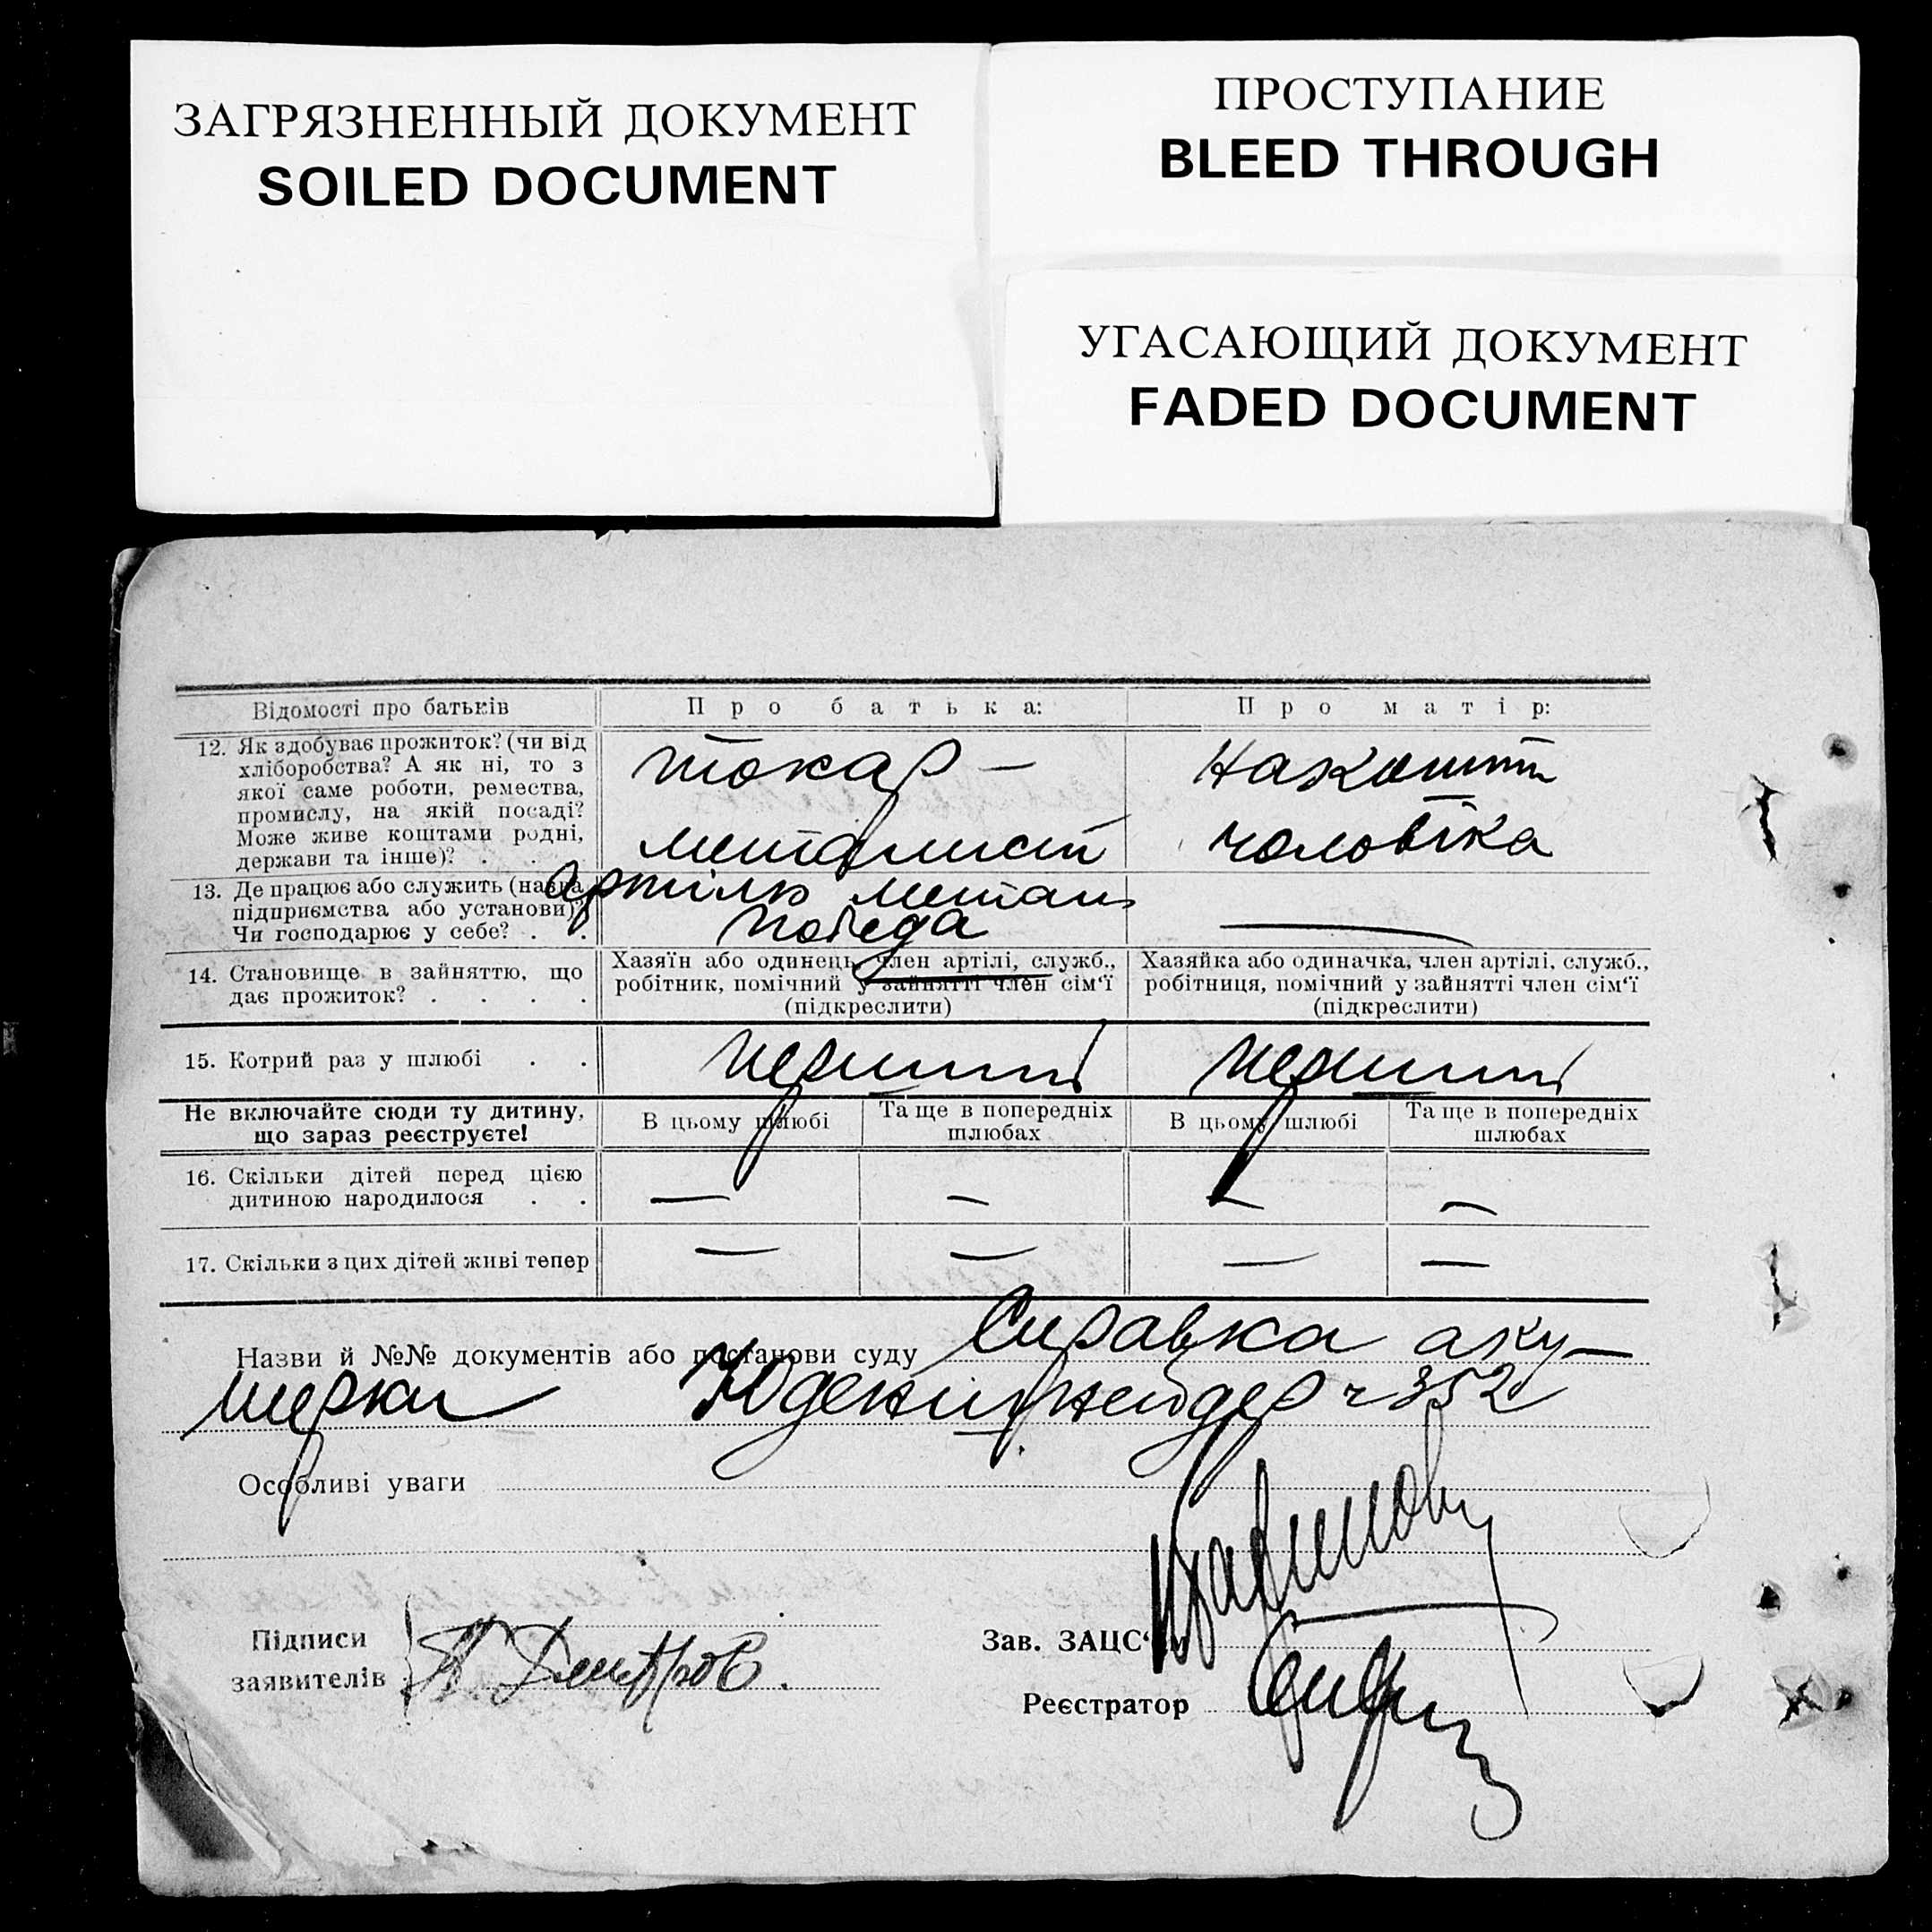 ЗАГРЯЗНЕННЫЙ ДОКУМЕНТ
SOILED DOCUMENT
ПРОСТУПАНИЕ
BLEED THROUGH
УГАСАЮЩИЙ ДОКУМЕНТ
FADED DOCUMENT
Відомості про батьків
Про батька:
Про матір:
12. Як здобуває прожиток? (чи від
хліборобства? А як ні, то з
якої саме роботи, ремества,
промислу, на якій посаді?
Може живе коштами родні,
держави та інше)? . . .
токар –
металист
На кошти
чоловіка
13. Де працює або служить (назва
підприємства або установи)?
Чи господарює у себе? . .
Артіль метал
победа
—
14. Становище в зайняттю, що
дає прожиток? . . . .
Хазяїн або одинець, член артілі, служб.,
робітник, помічний у зайнятті член сім'ї
(підкреслити)
Хазяйка або одиначка, член артілі, служб.,
робітниця, помічний у зайнятті член сім'ї
(підкреслити)
15. Котрий раз у шлюбі . .
перший
перший
Не включайте сюди ту дитину,
що зараз реєструєте!
В цьому шлюбі
Та ще в попередніх
шлюбах
В цьому шлюбі
Та ще в попередніх
шлюбах
16. Скільки дітей перед цією
дитиною народилося . .
— — — —
17. Скільки з цих дітей живі тепер
— — — —
Назви й №№ документів або постанови суду Справка аку–
шерки 352
Особливі уваги
Підписи
заявителів
Дмитров.
Зав. ЗАЦС'ом
Реєстратор